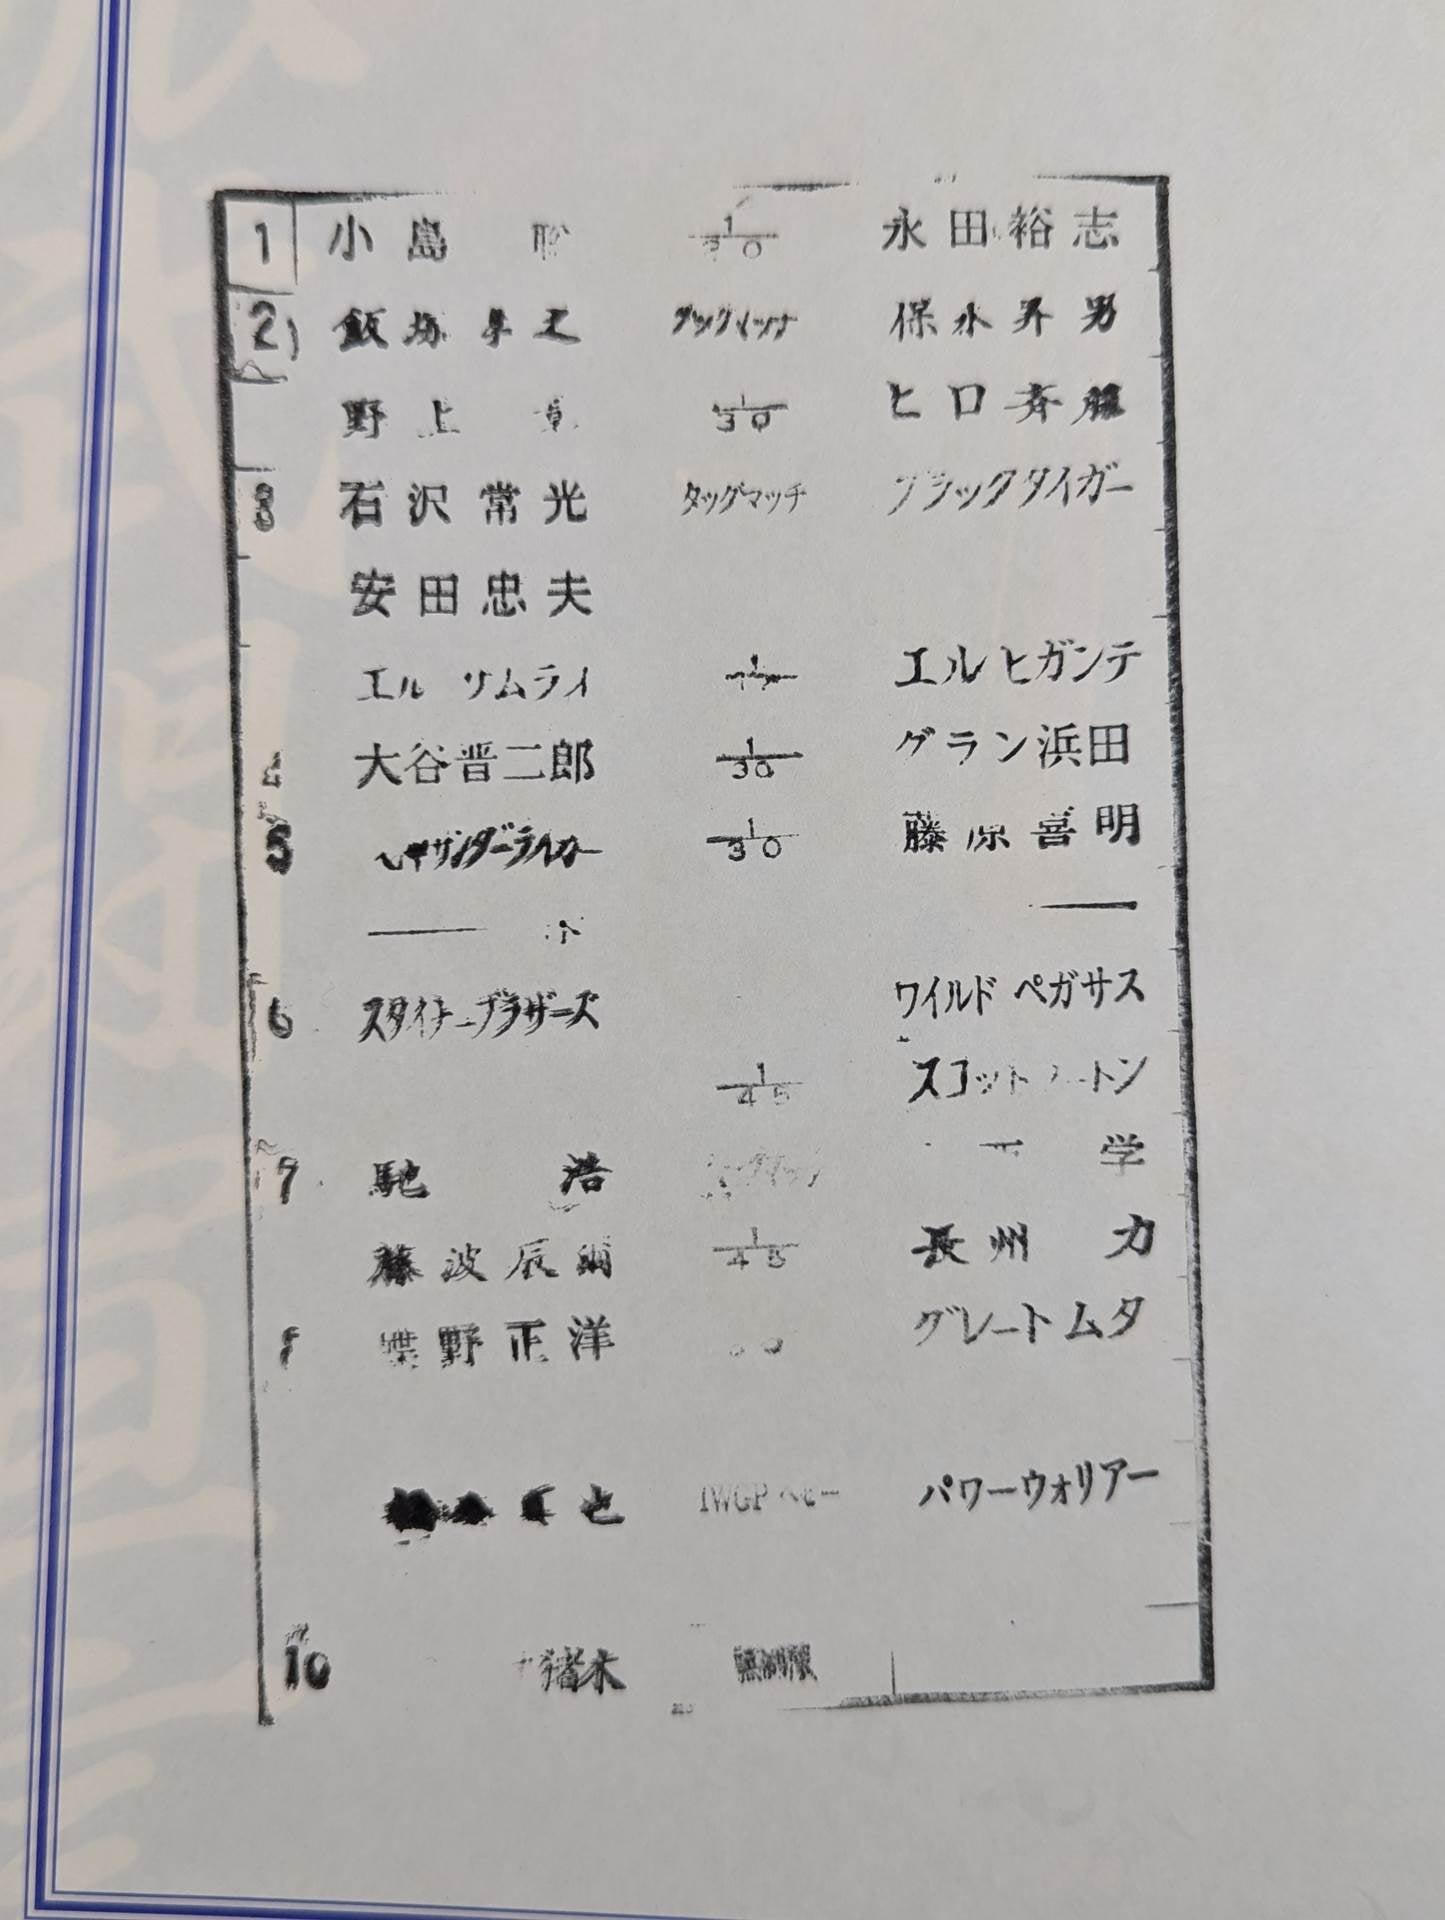 1 小島 聡 1/30 永田裕志
2 飯塚孝之 タッグマッチ 保永昇男
野上 彰 1/30 ヒロ斉藤
3 石沢常光 タッグマッチ ブラックタイガー
安田忠夫
エル サムライ 1 エルヒガンテ
4 大谷晋二郎 1/30 グラン浜田
5 サンダーライガー 1/30 藤原喜明
6 スタイナーブラザーズ ワイルド ペガサス
1/45 スコット ートン
7 馳 浩 学
藤波辰爾 1/45 長州 力
蝶野正洋 グレートムタ
也 IWGPヘビー パワーウォリアー
10 猪木 無制限